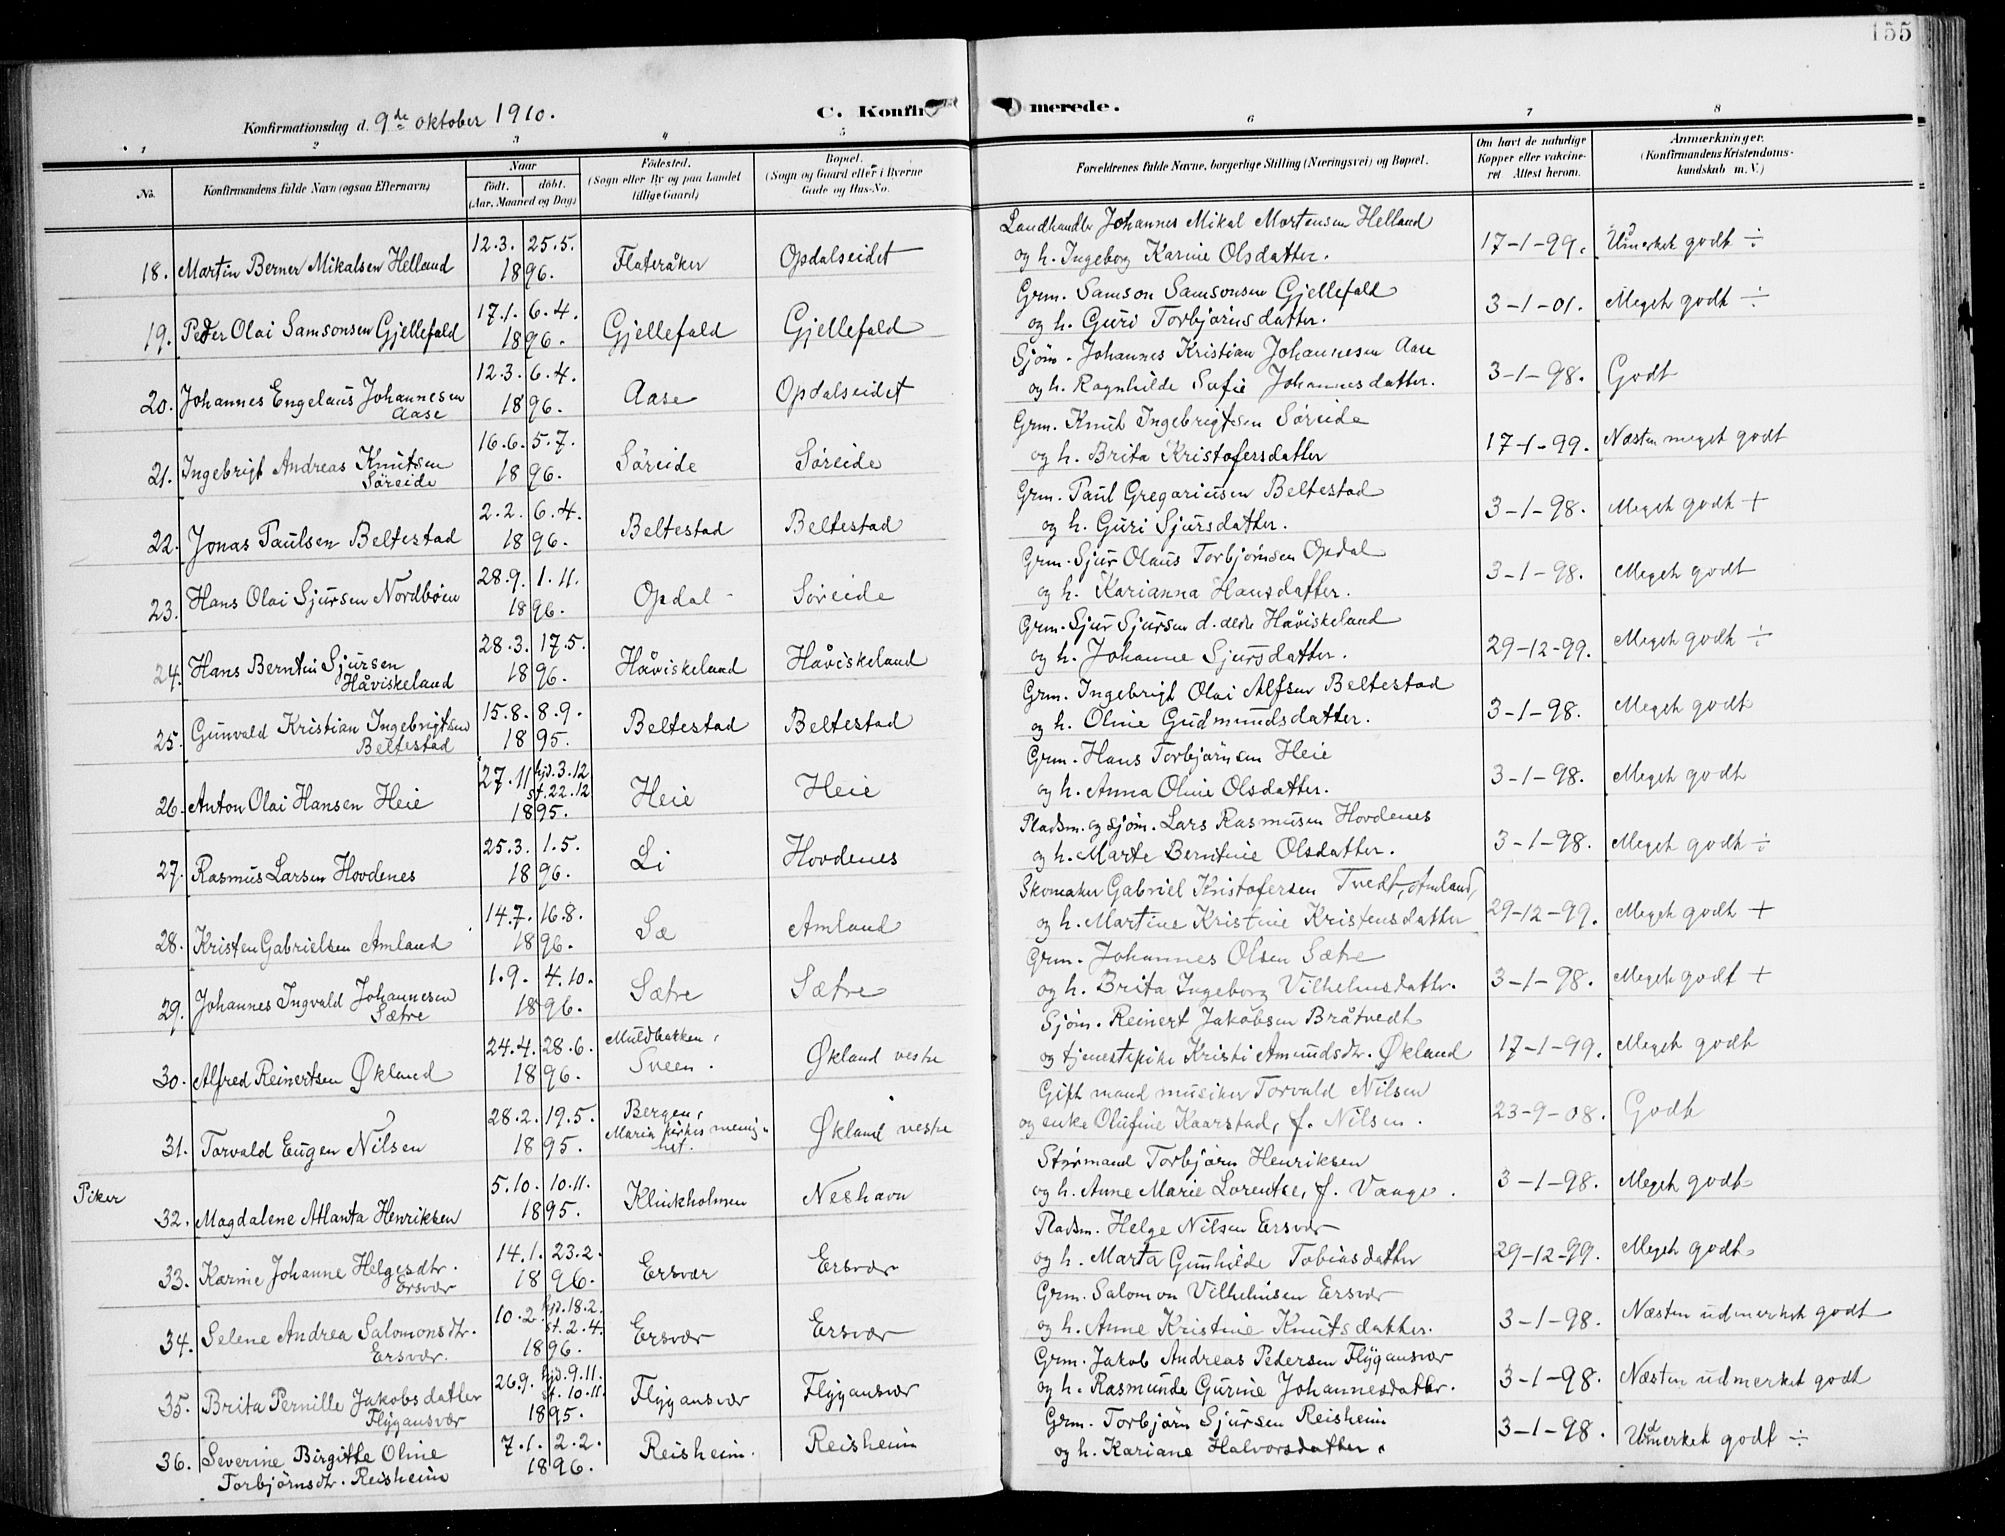 155
Konfirmationsdag d. 9de oktober 1910. C. Konfir merede.
1 2 3 4 5 6 7 8
No. Konfirmandens fulde Navn (ogsaa Efternavn) Naar født. døbt. (Aar, Maaned og Dag) Fødested. (Sogn eller By og paa Landet tillige Gaard) Bopæl. (Sogn og Gaard eller i Byerne Gade og Hus-No. Forældrenes fulde Navne, borgerlige Stilling (Næringsvei) og Bopæl. Om havt de naturlige Kopper eller vakcineret Attest herom. Anmærkninger. (Konfirmandens Kristendomskundskab m. V.)
18. Martin Berner Mikalsen Helland 12.3. 25.5. 1896. Flateråker Opdalseidet Landhandler Johannes Mikal Martensen Helland
og h. Ingeborg Karine Olsdatter. 17-1-99. Udmerket godt ÷
19. Peder Olai Samsonsen Gjellefald 17.1. 6.4. 1896. Gjellefald Gjellefald Grm. Samson Samsonsen Gjellefald
og h. Guri Torbjørnsdatter. 3-1-01. Meget godt ÷
20. Johannes Engelaus Johannesen Aase 12.3. 6.4. 1896. Aase Opdalseidet Sjøm. Johannes Kristian Johannesen Aase
og h. Ragnhilde Sofie Johannesdatter. 3-1-98. Godt
21. Ingebrigt Andreas Knutsen Søreide 16.6. 5.7. 1896. Søreide Søreide Grm. Knut Ingebrigtsen Søreide
og h. Brita Kristofersdatter 17-1-99. Næsten meget godt
22. Jonas Paulsen Beltestad 2.2. 6.4. 1896. Beltestad Beltestad Grm. Paul Gregoriusen Beltestad
og h. Guri Sjursdatter. 3-1-98. Meget godt +
23. Hans Olai Sjursen Nordbøen 28.9. 1.11. 1896. Opdal Søreide Grm. Sjur Olaus Torbjørnsen Opdal
og h. Karianna Hansdatter. 3-1-98. Meget godt
24. Hans Berntin Sjursen Håviskeland 28.3. 17.5. 1896. Håviskeland Håviskeland Grm. Sjur Sjursen d. ældre Håviskeland
og h. Johanne Sjursdatter. 29-12-99. Meget godt ÷
25. Gunvald Kristian Ingebrigtsen Beltestad 15.8. 8.9. 1895. Beltestad Beltestad Grm. Ingebrigt Olai Alfsen Beltestad
og h. Oline Gudmundsdatter. 3-1-98. Meget godt
26. Anton Olai Hansen Heie 27.11 hjd. 3.12 st. 22.12 1895. Heie Heie Grm. Hans Torbjørnsen Heie
og h. Anna Oline Olsdatter. 3-1-98. Meget godt
27. Rasmus Larsen Hovdenes 25.3. 1.5. 1896. Li Hovdenes Pladsm. og sjøm. Lars Rasmusen Hovdenes
og h. Marte Berntine Olsdatter. 3-1-98. Meget godt ÷
28. Kristen Gabrielsen Amland 14.7. 16.8. 1896. Sæ Amland Skomaker Gabriel Kristofersen Tvedt, Amland,
og h. Martine Kristine Kristensdatter 29-12-99. Meget godt +
29. Johannes Ingvald Johannesen Sætre 1.9. 4.10. 1896. Sætre Sætre Grm. Johannes Olsen Sætre
og h. Brita Ingeborg Vilhelmsdatter. 3-1-98. Meget godt +
30. Alfred Reinertsen Økland 24.4. 28.6. 1896. Muldbakken, Sveen. Økland vestre Sjøm. Reinert Jakobsen Bråtvedt
og tjenestepike Kristi Amundsdtr. Økland 17-1-99. Meget godt
31. Torvald Eugen Nilsen 28.2. 19.5. 1895. Bergen, Maria kirkes menighet. Økland vestre Gift mand musiker Torvald Nilsen
og enke Olufine Kaarstad, f. Nilsen. 23-9-08. Godt
Piker
32. Magdalene Atlanta Henriksen 5.10. 10.11. 1895. Klinkholmen Neshavn Styrmand Torbjørn Henriksen
og h. Anne Marie Lorentze, f. Vange. 3-1-98. Meget godt
33. Karine Johanne Helgesdtr. Ersvær 14.1. 23.2. 1896. Ersvær Ersvær Pladsm. Helge Nilsen Ersvær
og h. Marta Gunhilde Tobiasdatter 29-12-99. Meget godt
34. Selene Andrea Salomonsdtr. Ersvær. 10.2. hjd. 18.2. st. 2.4. 1896. Ersvær Ersvær Grm. Salomon Vilhelmsen Ersvær
og h. Anne Kristine Knutsdatter. 3-1-98. Næsten udmerket godt
35. Brita Pernille Jakobsdatter Flygansvær 26.9. hjd. 9.11. st. 10.11. 1895. Flygansvær Flygansvær Grm. Jakob Andreas Pedersen Flygansvær
og h. Rasmunde Gurine Johannesdatter. 3-1-98. Næsten udmerket godt
36. Severine Birgitte Oline Torbjørnsdtr. Reisheim 7.1. 2.2. 1896. Reisheim. Reisheim Grm. Torbjørn Sjursen Reisheim
og h. Kariane Halvorsdatter. 3-1-98. Udmerket godt ÷